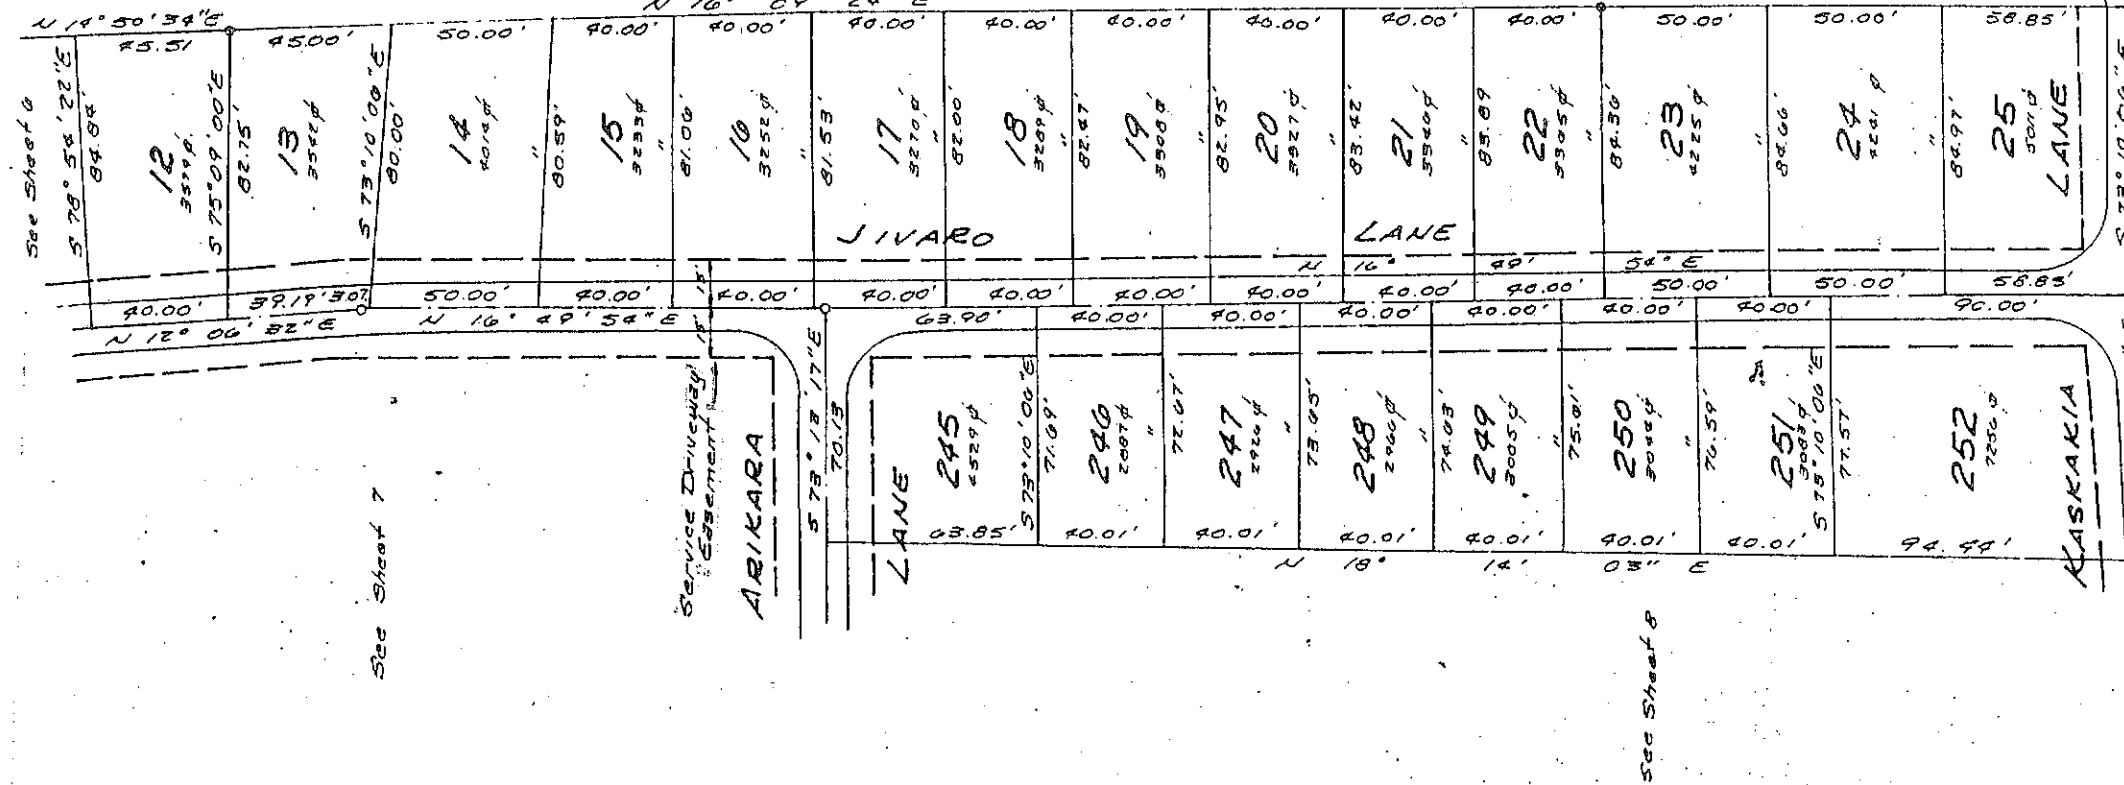 N 14° 50' 34" E
45.51 45.00' 50.00' 40.00' 40.00' 40.00' 40.00' 40.00' 40.00' 40.00' 40.00' 50.00' 50.00' 58.85'
See Sheet 6
S 78° 54' 22" E
84.84'
12
S 75° 09' 00" E
82.75'
13
3542 ⌀
S 73° 10' 06" E
80.00'
14
4014 ⌀
"
80.59'
15
3233 ⌀
"
81.06'
16
3252 ⌀
"
81.53'
17
3270 ⌀
"
82.00'
18
3289 ⌀
"
82.47'
19
3308 ⌀
"
82.95'
20
3327 ⌀
"
83.42'
21
3346 ⌀
"
83.89
22
3365 ⌀
"
84.36'
23
4225 ⌀
"
84.66'
24
4241 ⌀
"
84.97'
25
5011 ⌀
LANE
JIVARO LANE
N 16° 49' 54" E
40.00' 39.19' 3.07 50.00' 40.00' 40.00' 40.00' 40.00' 40.00' 40.00' 40.00' 40.00' 50.00' 50.00' 58.85'
N 12° 06' 32" E
N 16° 49' 54" E
15' 15'
63.90' 40.00' 40.00' 40.00' 40.00' 40.00' 40.00' 90.00'
See Sheet 7
Service Driveway
Easement
ARIKARA
S 73° 13' 17" E
70.13
LANE
245
4529 ⌀
S 73° 10' 06" E
71.69'
246
2887 ⌀
"
72.67'
247
2926 ⌀
"
73.65'
248
2966 ⌀
"
74.63'
249
3005 ⌀
"
75.61'
250
3044 ⌀
"
76.59'
251
3083 ⌀
S 73° 10' 06" E
77.57'
252
7256 ⌀
KASKAKIA
63.85' 40.01' 40.01' 40.01' 40.01' 40.01' 40.01' 94.44'
N 18° 14' 03" E
See Sheet 8